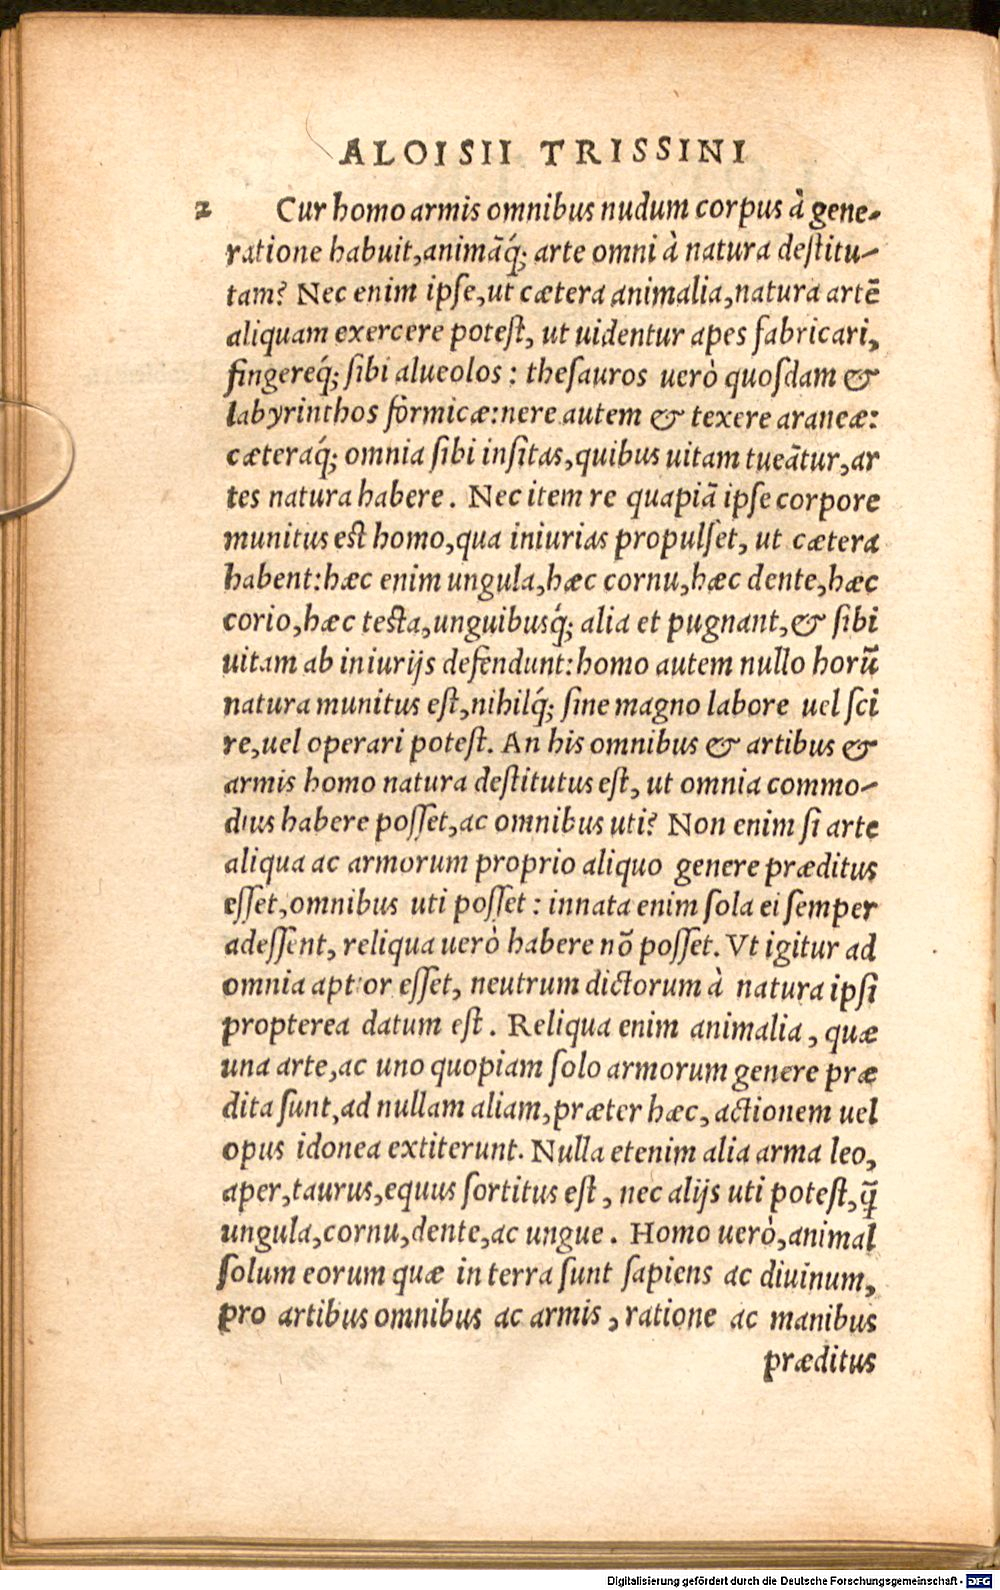 ALOISII TRISSINI
2 Cur homo armis omnibus nudum corpus à gene-
ratione habuit,animāq́; arte omni à natura destitu-
tam? Nec enim ipse,ut cætera animalia,natura artē
aliquam exercere potest, ut uidentur apes fabricari,
fingereq́; sibi alueolos: thesauros uerò quosdam &
labyrinthos formicæ:nere autem & texere araneæ:
cæteraq́; omnia sibi insitas,quibus uitam tueātur,ar
tes natura habere. Nec item re quapiā ipse corpore
munitus est homo,qua iniurias propulset, ut cætera
habent:hæc enim ungula,hæc cornu,hæc dente,hæc
corio,hæc testa,unguibusq́; alia et pugnant,& sibi
uitam ab iniurijs defendunt:homo autem nullo horū
natura munitus est,nihilq́; sine magno labore uel sci
re,uel operari potest. An his omnibus & artibus &
armis homo natura destitutus est, ut omnia commo-
dius habere posset,ac omnibus uti? Non enim si arte
aliqua ac armorum proprio aliquo genere præditus
esset,omnibus uti posset: innata enim sola ei semper
adessent, reliqua uerò habere nō posset. Vt igitur ad
omnia aptior esset, neutrum dictorum à natura ipsi
propterea datum est. Reliqua enim animalia, quæ
una arte,ac uno quopiam solo armorum genere præ
dita sunt,ad nullam aliam,præter hæc, actionem uel
opus idonea extiterunt. Nulla etenim alia arma leo,
aper,taurus,equus sortitus est, nec alijs uti potest,q̄
ungula,cornu,dente,ac ungue. Homo uerò,animal
solum eorum quæ in terra sunt sapiens ac diuinum,
pro artibus omnibus ac armis, ratione ac manibus
præditus
Digitalisierung gefördert durch die Deutsche Forschungsgemeinschaft - DFG